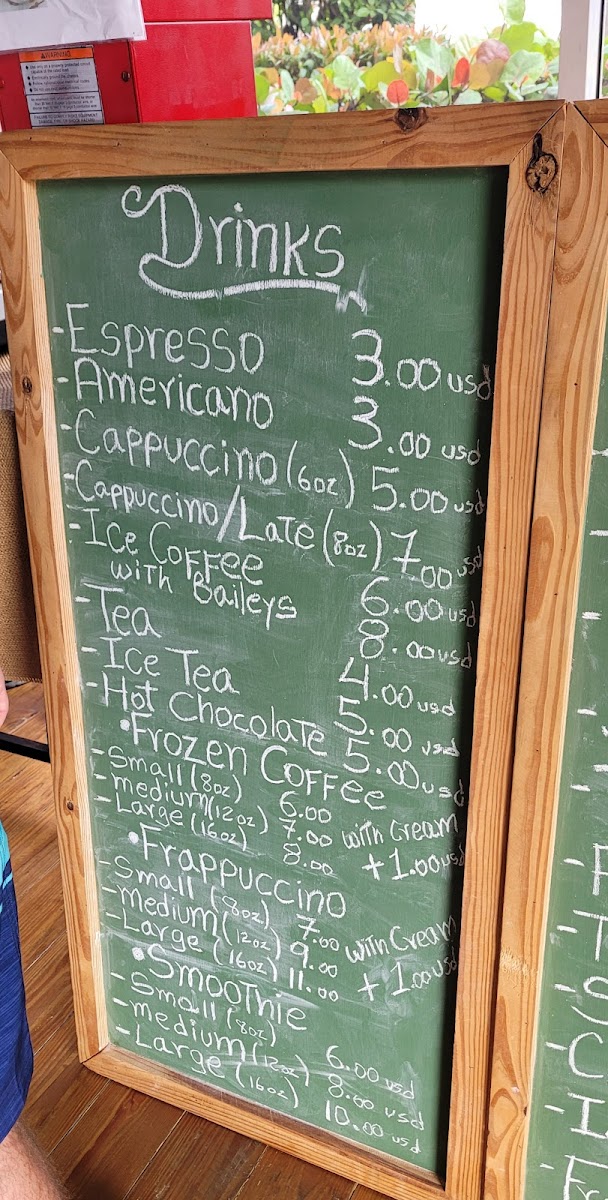 WARNING
Drinks
-Espresso 3.00 usd
-Americano 3.00 usd
-Cappuccino (6oz) 5.00 usd
-Cappuccino/Late (8oz) 7.00 usd
-Ice Coffee 6.00 usd
with Baileys 8.00 usd
-Tea 4.00 usd
-Ice Tea 5.00 usd
-Hot Chocolate 5.00 usd
•Frozen Coffee
-Small (8oz) 6.00
-medium (12oz) 7.00 with Cream
-Large (16oz) 8.00 +1.00 usd
•Frappuccino
-Small (8oz) 7.00
-medium (12oz) 9.00 with Cream
-Large (16oz) 11.00 +1.00 usd
•Smoothie
-Small (8oz) 6.00 usd
-medium (12oz) 8.00 usd
-Large (16oz) 10.00 usd